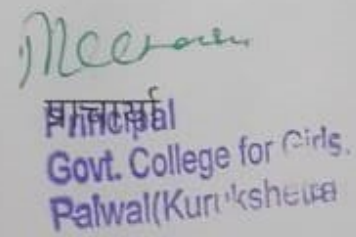 प्राचार्या
Principal
Govt. College for Girls.
Palwal(Kurukshetra